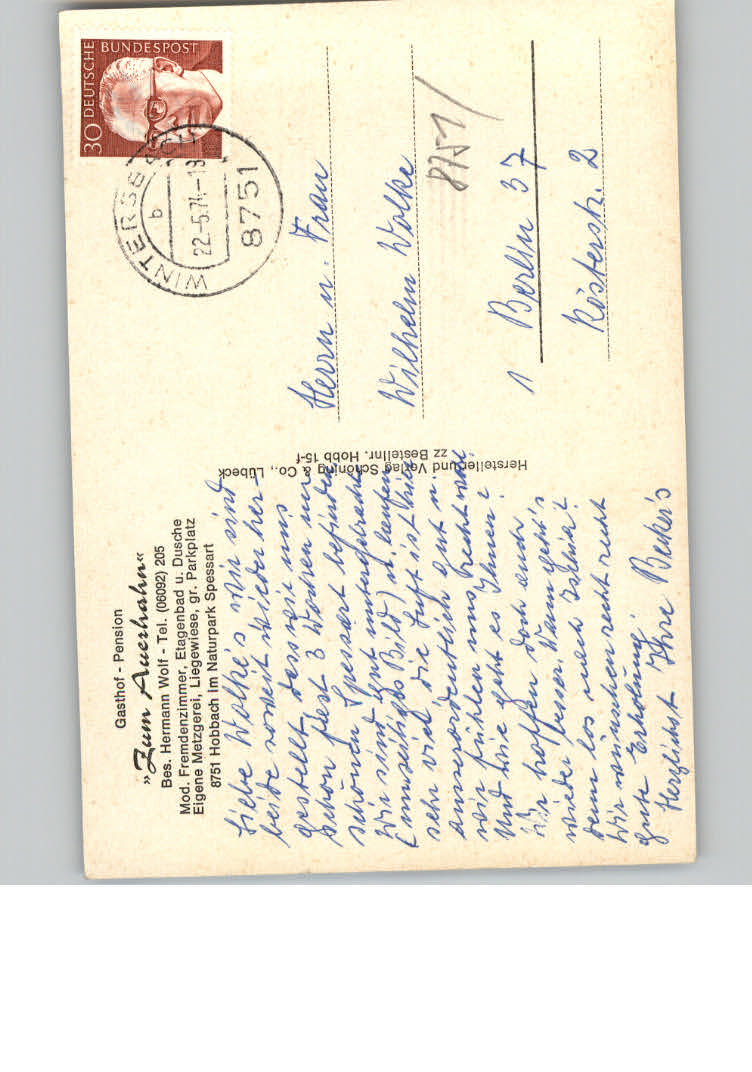 Gasthof - Pension
"Zum Auerhahn"
Bes. Hermann Wolf - Tel. (06092) 205
Mod. Fremdenzimmer, Etagenbad u. Dusche
Eigene Metzgerei, Liegewiese, gr. Parkplatz
8751 Hobbach im Naturpark Spessart
Liebe Wolke's wir sind
beide soweit wieder her-
gestellt, dass wir uns
schon fast 3 Wochen im
schönen Spessart befinden
Wir sind gut untergebracht
(umseitiges Bild) u. laufen
sehr viel die Luft ist hier
ausserordentlich gut u.
wir fühlen uns recht wohl
Und wie geht es Ihnen?
Wir hoffen doch auch
wieder besser. Wann geht's
denn los nach Ischia?
Wir wünschen recht recht
gute Erholung
Herzlichst Ihre Becker's
Hersteller und Verlag Schöning & Co., Lübeck
zz Bestellnr. Hobb 15-f
30 DEUTSCHE BUNDESPOST
WINTERSB
b
22.-5.74.-18
8751
8751/
Herrn u. Frau
Wilhelm Wolke
1 Berlin 37
Rösterstr. 2